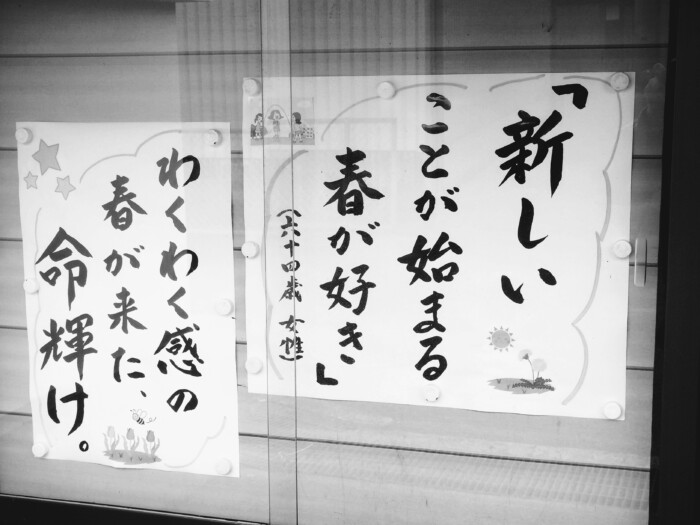 「新しい
ことが始まる
春が好き」
(六十四歳 女性)
わくわく感の
春が来た、
命輝け。